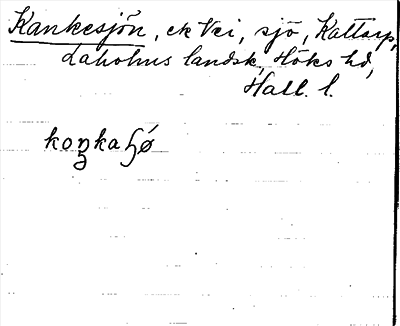 Kankesjön, ek Vei, sjö, Kattarp,
Laholms landsk, Höks hd,
Hall. l.
koŋka ɧø